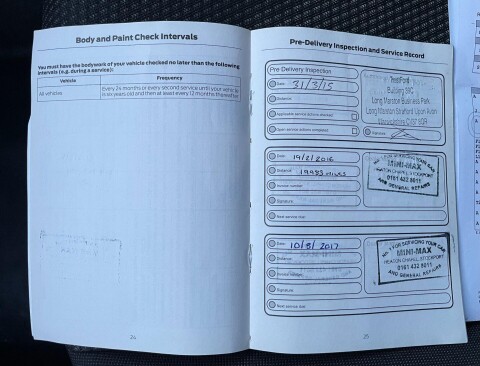 Body and Paint Check Intervals
You must have the bodywork of your vehicle checked no later than the following
intervals (e.g. during a service):
Vehicle Frequency
All vehicles Every 24 months or every second service until your vehicle
is six years old and then at least every 12 months thereafter
24
Pre-Delivery Inspection and Service Record
Pre Delivery Inspection
Date: 31/3/15
Distance:
Applicable service actions checked:
Open service actions completed:
Building 59C
Long Marston Business Park
Long Marston Stratford Upon Avon
Signature:
Date: 19/2/2016
Distance: 19985 miles
Invoice number:
Signature:
Next service due:
No. 1 FOR SERVICING YOUR CAR
MINI-MAX
HEATON CHAPEL STOCKPORT
0161 432 8011
AND GENERAL REPAIRS
Date: 10/8/2017
Distance:
Invoice number:
Signature:
Next service due:
No. 1 FOR SERVICING YOUR CAR
MINI-MAX
HEATON CHAPEL STOCKPORT
0161 432 8011
AND GENERAL REPAIRS
25